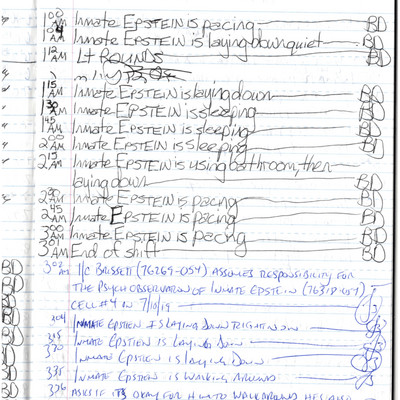 1 00 AM Inmate EPSTEIN is pacing BD
1 04 AM Inmate EPSTEIN is laying down quiet BD
1 12 AM Lt ROUNDS BD
1 15 AM Inmate EPSTEIN is laying down BD
1 30 AM Inmate EPSTEIN is sleeping BD
1 45 AM Inmate EPSTEIN is sleeping BD
2 00 AM Inmate EPSTEIN is sleeping BD
2 15 AM Inmate EPSTEIN is using bathroom, then
laying down BD
2 30 AM Inmate EPSTEIN is pacing BD
2 45 AM Inmate EPSTEIN is pacing BD
3 00 AM Inmate EPSTEIN is pacing BD
3 01 AM End of shift BD
BD 302 AM I/C BRISSETT (76269-054) ASSUMES RESPONSIBILITY FOR
BD THE PSYCH OBSERVATION OF INMATE EPSTEIN (76318-054)
BD CELL #4 IN 7/10/19
BD 304 INMATE EPSTEIN IS LAYING DOWN
BD INMATE EPSTEIN IS LAYING DOWN
BD 320 INMATE EPSTEIN IS LAYING DOWN
BD 335 INMATE EPSTEIN IS WALKING AROUND
BD 336 ASKS IF ITS OKAY FOR HIM TO WALK AROUND